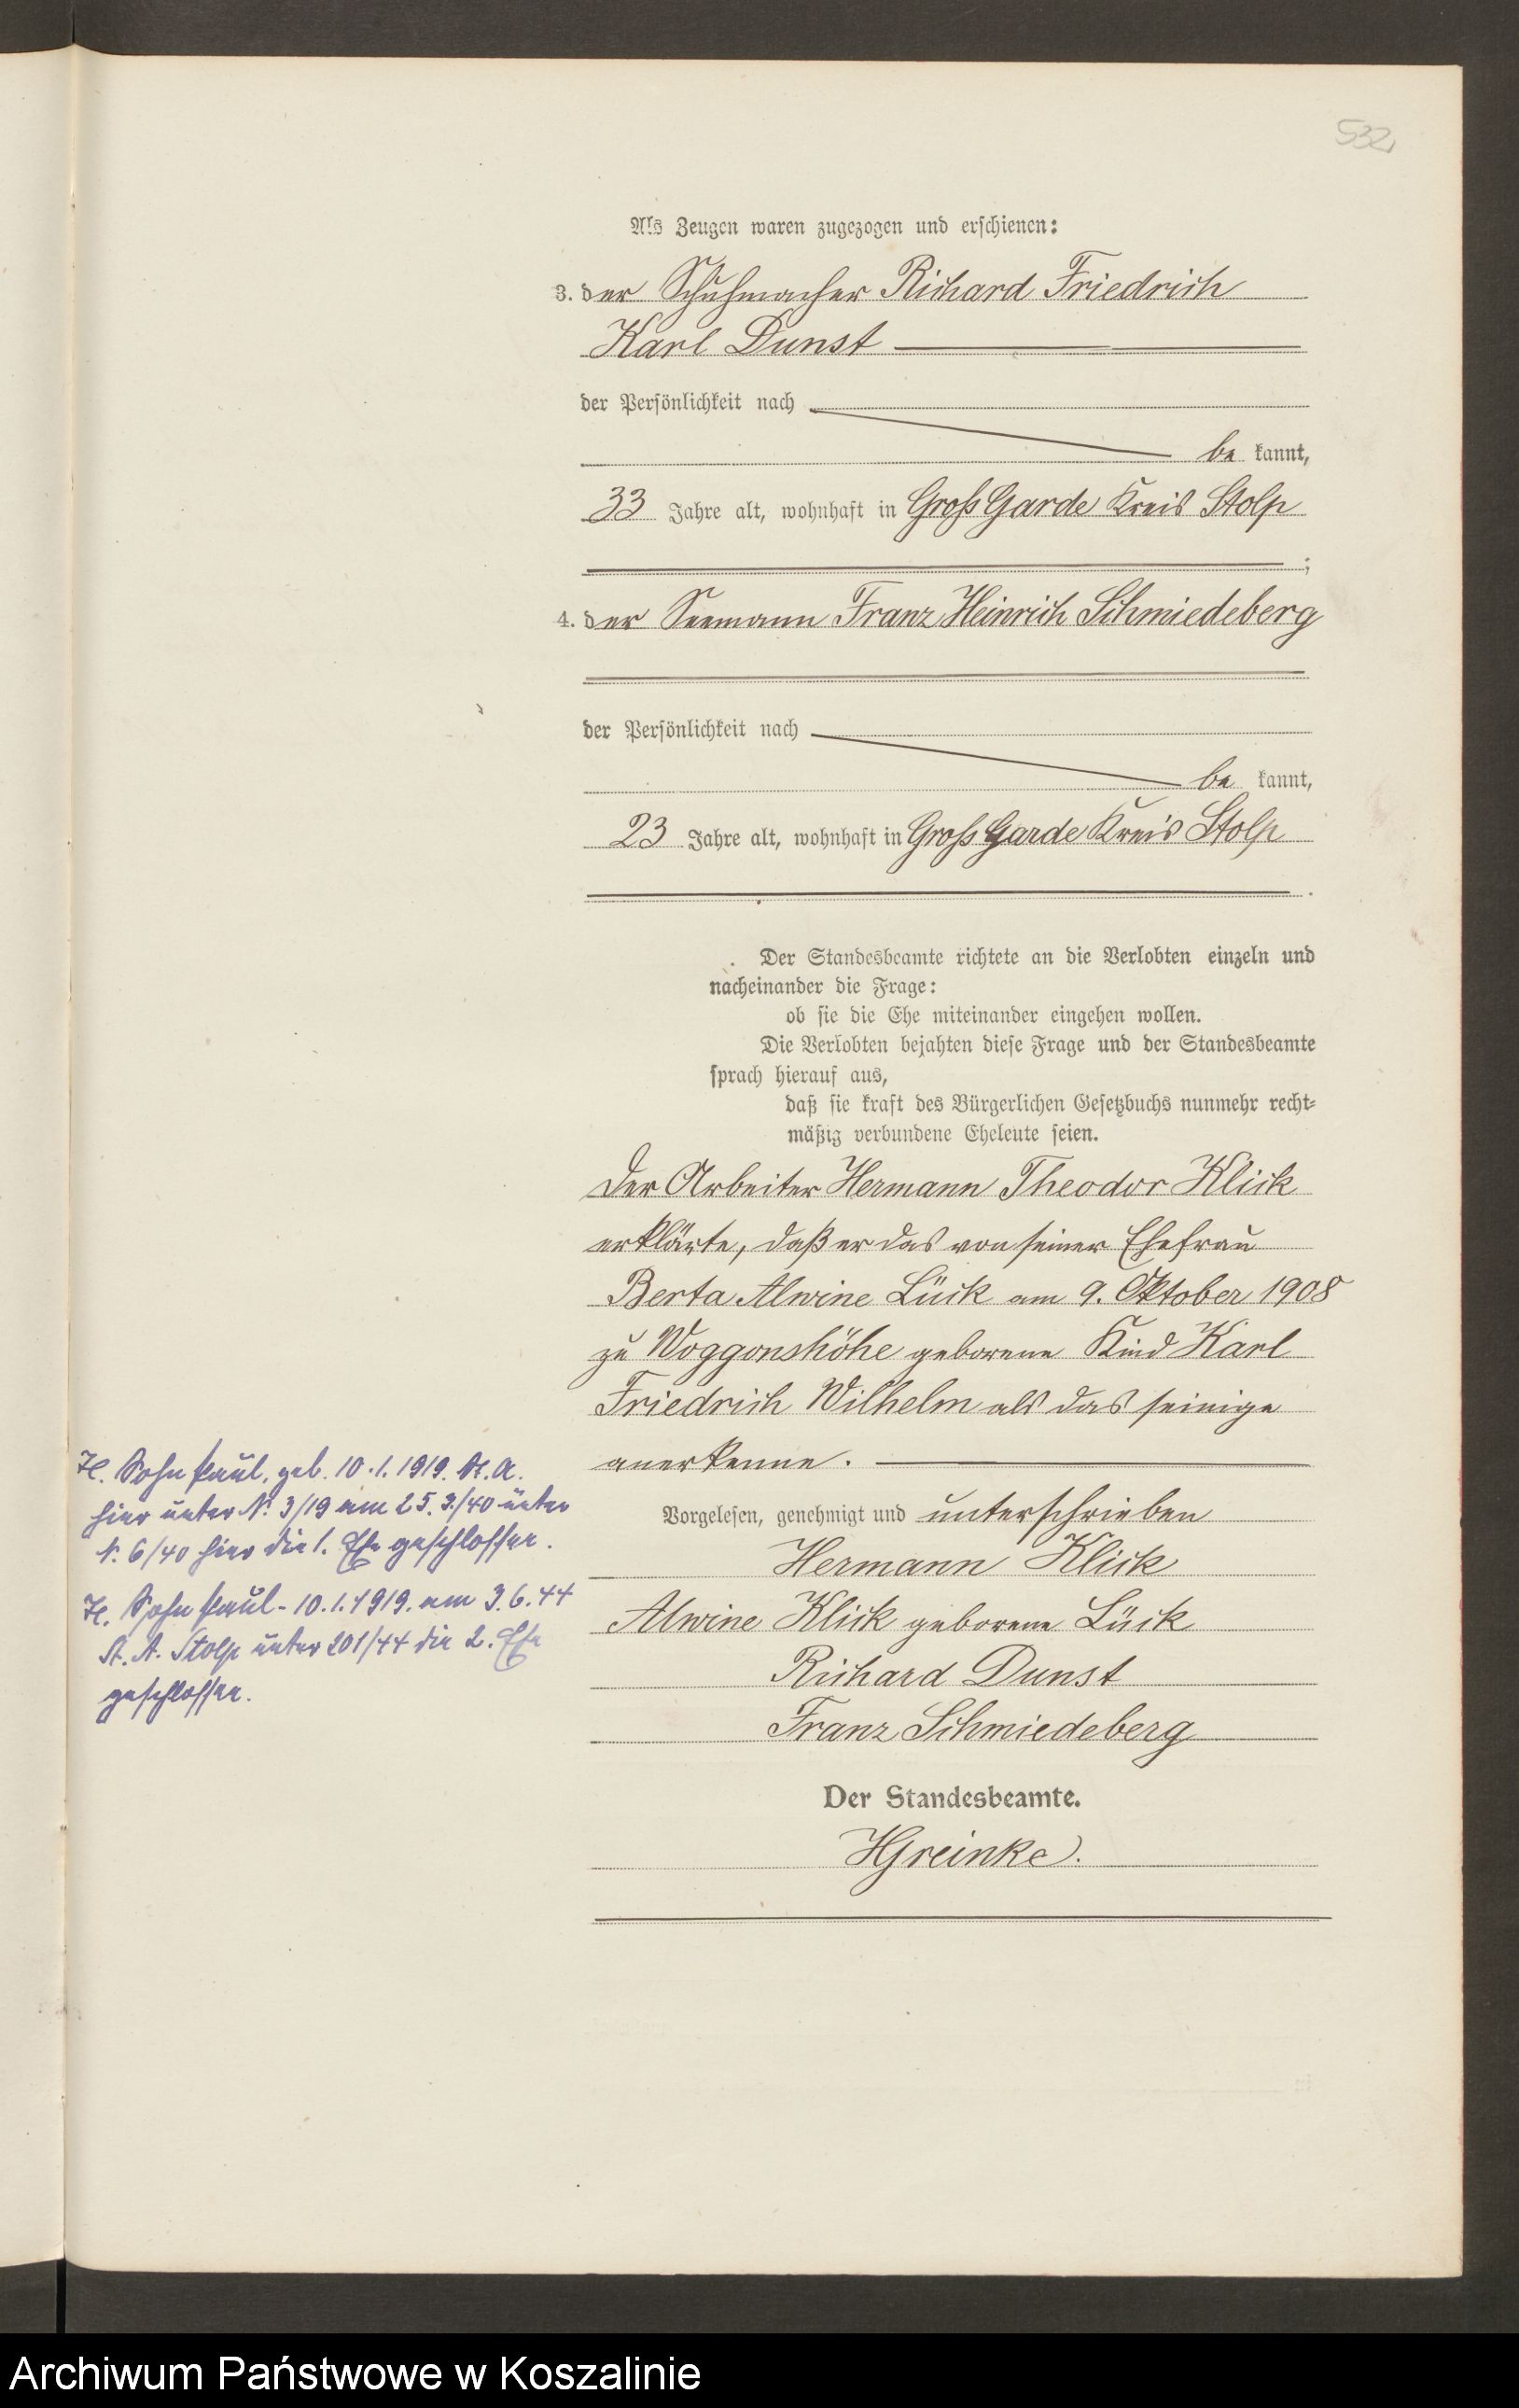 532
Als Zeugen waren zugezogen und erschienen:
3. der Schuhmacher Richard Friedrich
Karl Dunst
der Persönlichkeit nach
be kannt,
33 Jahre alt, wohnhaft in Groß Garde Kreis Stolp
;
4. der Seemann Franz Heinrich Schmiedeberg
der Persönlichkeit nach
be kannt,
23 Jahre alt, wohnhaft in Groß Garde Kreis Stolp
.
Der Standesbeamte richtete an die Verlobten einzeln und
nacheinander die Frage:
ob sie die Ehe miteinander eingehen wollen.
Die Verlobten bejahten diese Frage und der Standesbeamte
sprach hierauf aus,
daß sie kraft des Bürgerlichen Gesetzbuchs nunmehr recht-
mäßig verbundene Eheleute seien.
Der Arbeiter Hermann Theodor Klick
erklärte, daß er das von seiner Ehefrau
Berta Alwine Lück am 9. Oktober 1908
zu Woggonshöhe geborene Kind Karl
Friedrich Wilhelm als das seinige
anerkenne.
Vorgelesen, genehmigt und unterschrieben
Hermann Klick
Alwine Klick geborene Lück
Richard Dunst
Franz Schmiedeberg
Der Standesbeamte.
HGreinke.
H. Sohn Paul, geb. 10.1.1919. St. A.
hier unter N. 3/19 am 25.3./40 unter
N. 6/40 hier die 1. Ehe geschlossen.
H. Sohn Paul - 10.1.1919. am 3.6.44
St. A. Stolp unter 201/44 die 2. Ehe
geschlossen.
Archiwum Państwowe w Koszalinie